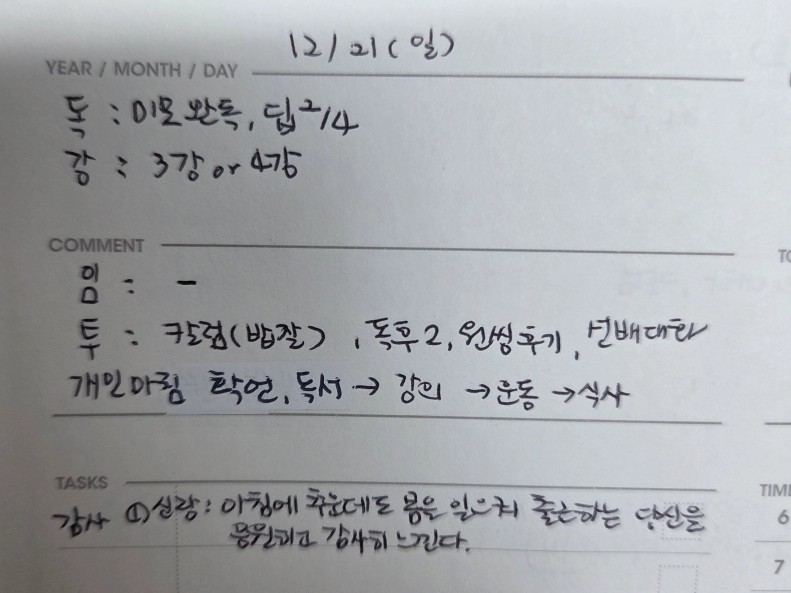 12/21(일)
YEAR / MONTH / DAY
독 : 미모완독, 딥 2/4
강 : 3강 or 4강
COMMENT
임 : -
투 : 칼럼(밥잘), 독후2, 원씽후기, 선배대화
개인마림 확언, 독서 → 강의 → 운동 → 식사
TASKS
감사 ①신랑: 아침에 추운데도 몸을 일으켜 출근하는 당신을
응원하고 감사히 느낀다.
TIME
6
7